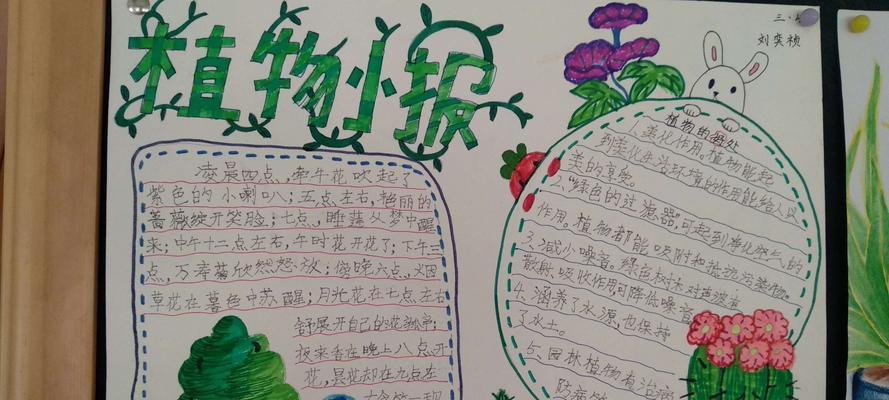 植物小报
三.
刘奕祯
凌晨四点，牵牛花吹起了
紫色的小喇叭；五点左右，艳丽的
蔷薇绽开笑脸；七点，睡莲从梦中醒
来；中午十二点左右，午时花开花了；下午三
点，万寿菊欣然怒放；傍晚六点，烟
草花在暮色中苏醒；月光花在七点左右
舒展开自己的花瓣；
夜来香在晚上八点开
花，昙花却在九点左
右含笑一现
植物的好处
1.美化作用。植物能起
到美化生活环境的作用能给人以
美的享受。
2."绿色的过滤器"，可起到净化空气的
作用。植物都能吸附和抵抗污染物。
3.减小噪音。绿色树林对声波有
散射、吸收作用可降低噪音
4、涵养了水源，也保持
了水土。
5、园林植物有治病
防病